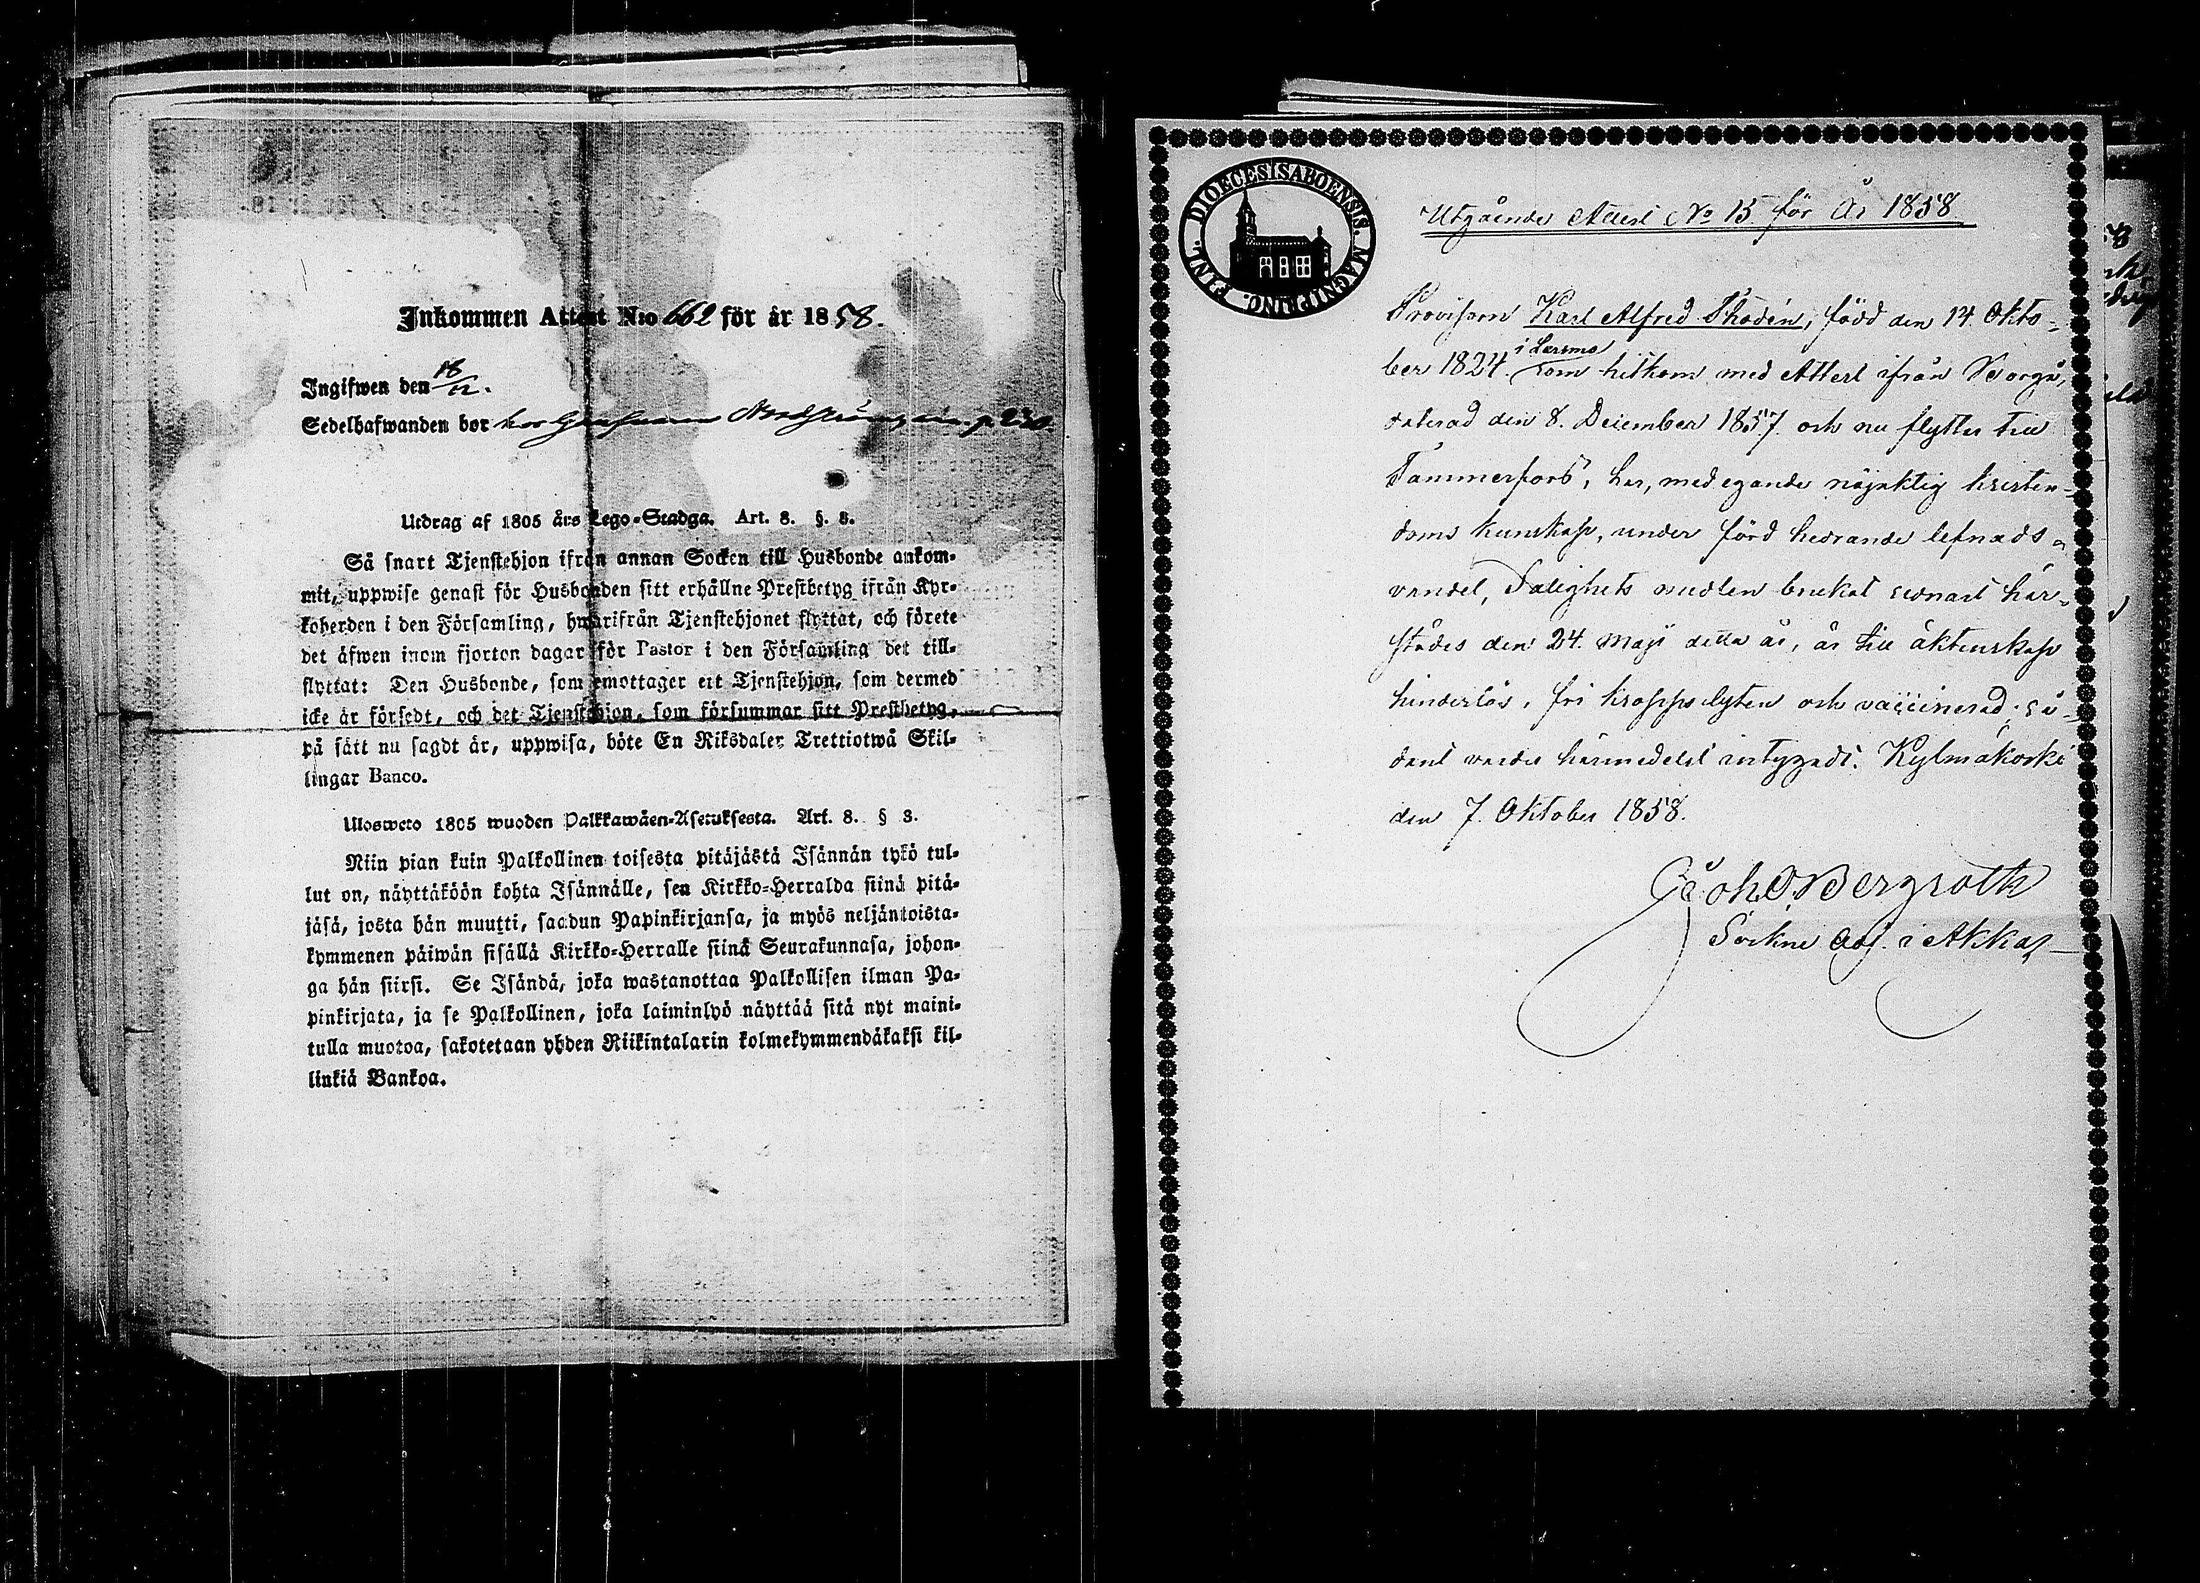 Inkommen Attest N:o 662 för år 1858.
Ingifwen den 18/12.
Sedelhafwanden bor hos p. 230.
Utdrag af 1805 års Lego-Stadga. Art. 8. §. 8.
Så snart Tjenstehjon ifrån annan Socken till Husbonde ankom-
mit, uppwise genast för Husbonden sitt erhållne Prestbetyg ifrån Kyr-
koherden i den Församling, hwarifrån Tjenstehjonet flyttat, och förete
det äfwen inom fjorton dagar för Pastor i den Församling det till-
flyttat: Den Husbonde, som emottager ett Tjenstehjon, som dermed
icke är försedt, och det Tjenstehjon, som försummar sitt Prestbetyg,
på sätt nu sagdt är, uppwisa, böte En Riksdaler Trettiotwå Skil-
lingar Banco.
Ulosweto 1805 wuoden Palkkawäen-Asetuksesta. Art. 8. § 8.
Niin pian kuin Palkollinen toisesta pitäjästä Isännän tykö tul-
lut on, näyttäköön kohta Isännälle, sen Kirkko-Herralda siinä pitä-
jäsä, josta hän muutti, saadun Papinkirjansa, ja myös neljäntoista-
kymmenen päiwän sisällä Kirkko-Herralle siinä Seurakunnasa, johon-
ga hän siirsi. Se Isändä, joka wastanottaa Palkollisen ilman Pa-
pinkirjata, ja se Palkollinen, joka laiminlyö näyttää sitä nyt maini-
tulla muotoa, sakotetaan yhden Riikintalarin kolmekymmendäkaksi kil-
linkiä Bankoa.
DIOECESIS ABOENSIS. MAGNI PRINC. FINL.
Utgående Attest No 15 för År 1858
Provisorn Karl Alfred Thodén, född den 14 Okto-
ber 1824 i Larsmo som hitkom med Attest ifrån Borgå,
daterad den 8. December 1857 och nu flyttar till
Tammerfors, har, med egande nöjaktig kristen-
doms kunskap, under förd hedrande lefnads-
vandel, Salighets medlen brukat senast här-
städes den 24. Maji detta år, är till äktenskap
hinderlös, fri kroppslyten och vaccinerad; så-
dant varder härmedelst intygadt. Kylmäkoski
den 7. Oktober 1858.
Joh. O. Bergroth
Sockne Adj. i Akkas